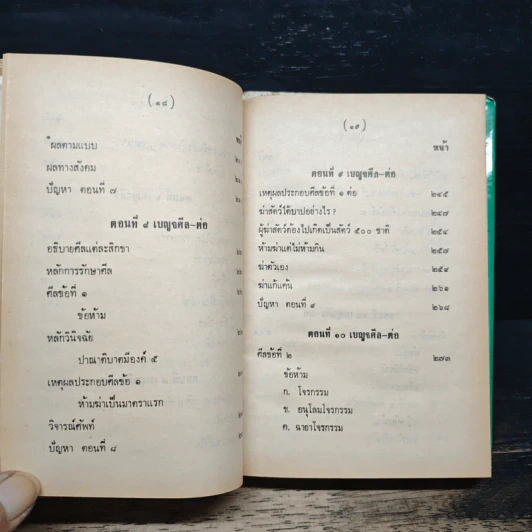 (๑๘)
ผลตามแบบ
ผลทางสังคม
ปัญหา ตอนที่ ๗
ตอนที่ ๘ เบญจศีล-ต่อ
อธิบายศีลแต่ละสิกขา
หลักการรักษาศีล
ศีลข้อที่ ๑
ข้อห้าม
หลักวินิจฉัย
ปาณาติบาตมีองค์ ๕
เหตุผลประกอบศีลข้อ ๑
ห้ามฆ่าเป็นมาตราแรก
วิจารณ์ศัพท์
ปัญหา ตอนที่ ๘
(๑๙)
หน้า
ตอนที่ ๙ เบญจศีล-ต่อ
เหตุผลประกอบศีลข้อที่ ๑ ต่อ ๒๔๕
ฆ่าสัตว์ได้บาปอย่างไร? ๒๔๗
ผู้ฆ่าสัตว์ต้องไปเกิดเป็นสัตว์ ๕๐๐ ชาติ ๒๕๔
ห้ามฆ่าแต่ไม่ห้ามกิน ๒๕๗
ฆ่าตัวเอง ๒๕๙
ฆ่าแก้แค้น ๒๖๑
ปัญหา ตอนที่ ๙ ๒๖๘
ตอนที่ ๑๐ เบญจศีล-ต่อ
ศีลข้อที่ ๒ ๒๗๓
ข้อห้าม
ก. โจรกรรม
ข. อนุโลมโจรกรรม
ค. ฉายาโจรกรรม